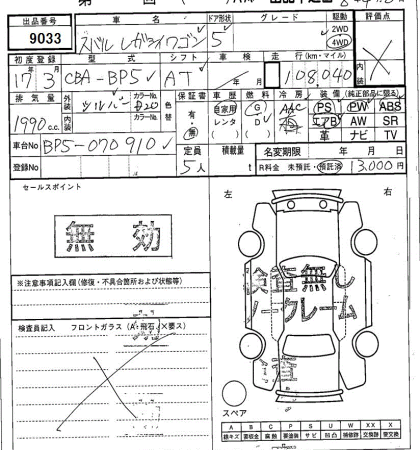 出品番号 車名 ドア形状 グレード 駆動 評価点
9033 スバル レガシィワゴン 5 2WD 4WD
初度登録 型式 シフト 車検 走行(km・マイル) 内装
17年3月 CBA-BP5 AT 年 月 108,040
排気量 外装 カラーNo. 色替 保証書 車歴 燃料 冷房 装備(純正部品に限る)
1990c.c. 内装 シルバー カラーNo. 有・無 自家用 レンタ G D AAC PS PW ABS
エアB AW SR
革 ナビ TV
車台No BP5-070910 定員 積載量 名変期限 年 月 日
登録No 5人 t R料金 未預託・預託済 13,000円
セールスポイント 左 右
無効
検査無し
ノークレーム
※注意事項記入欄(修復・不具合箇所および状態等)
検査員記入 フロントガラス(A:飛石 X要ス)
スペア
A B C P S U W XX X